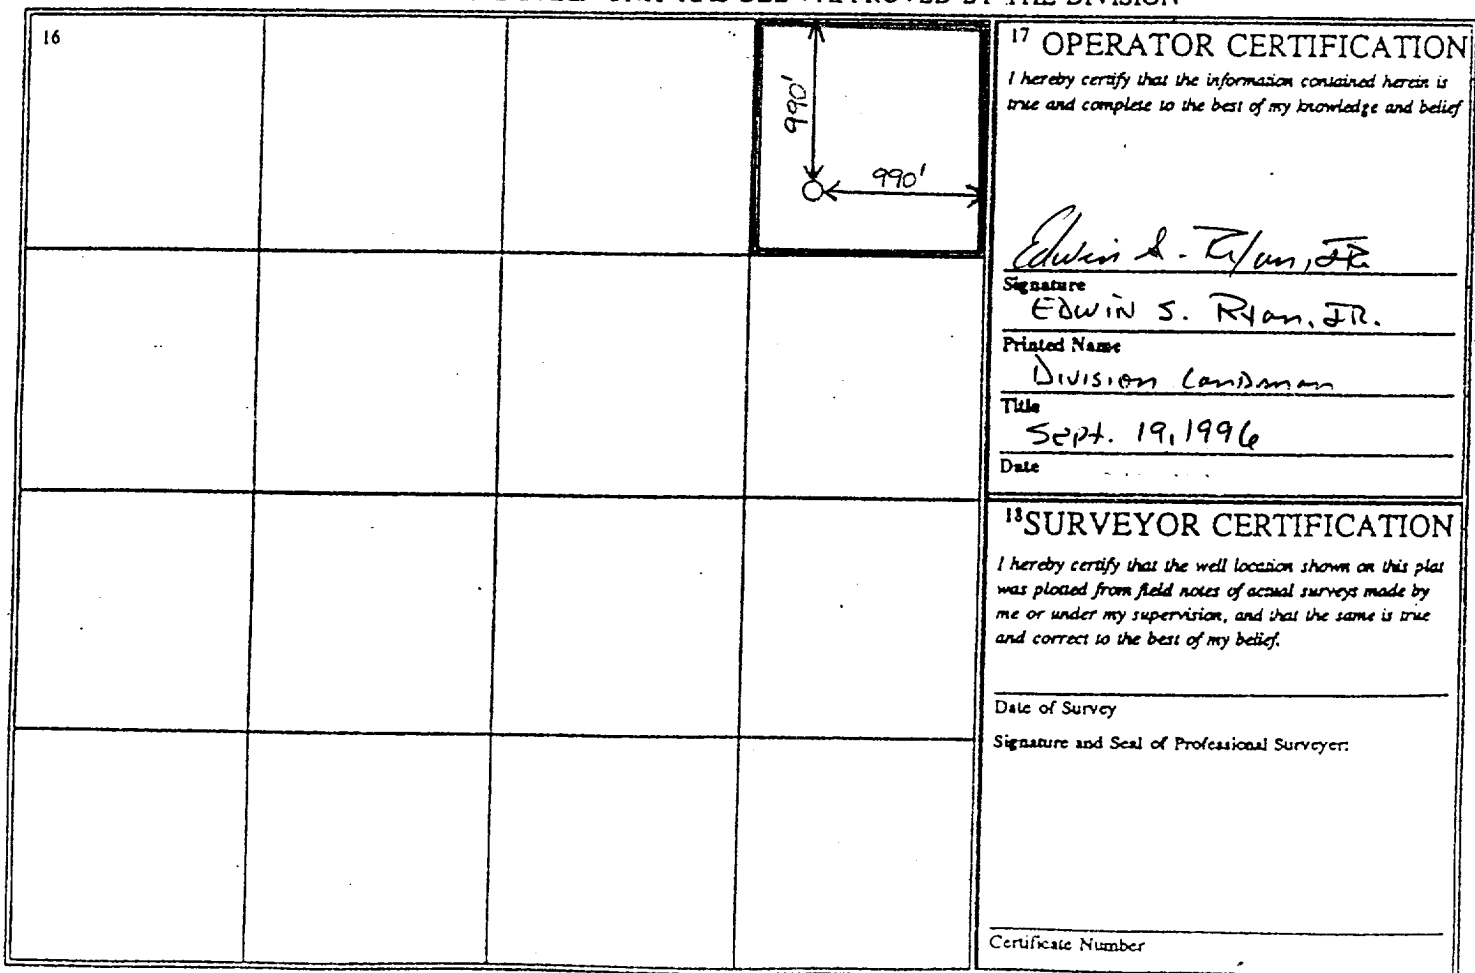 APPROVED BY THE DIVISION
16
990'
990'
17 OPERATOR CERTIFICATION
I hereby certify that the information contained herein is
true and complete to the best of my knowledge and belief
Edwin S. Ryan, JR.
Signature
EDWIN S. Ryan, JR.
Printed Name
Division Landman
Title
Sept. 19, 1996
Date
18 SURVEYOR CERTIFICATION
I hereby certify that the well location shown on this plat
was plotted from field notes of actual surveys made by
me or under my supervision, and that the same is true
and correct to the best of my belief.
Date of Survey
Signature and Seal of Professional Surveyer:
Certificate Number